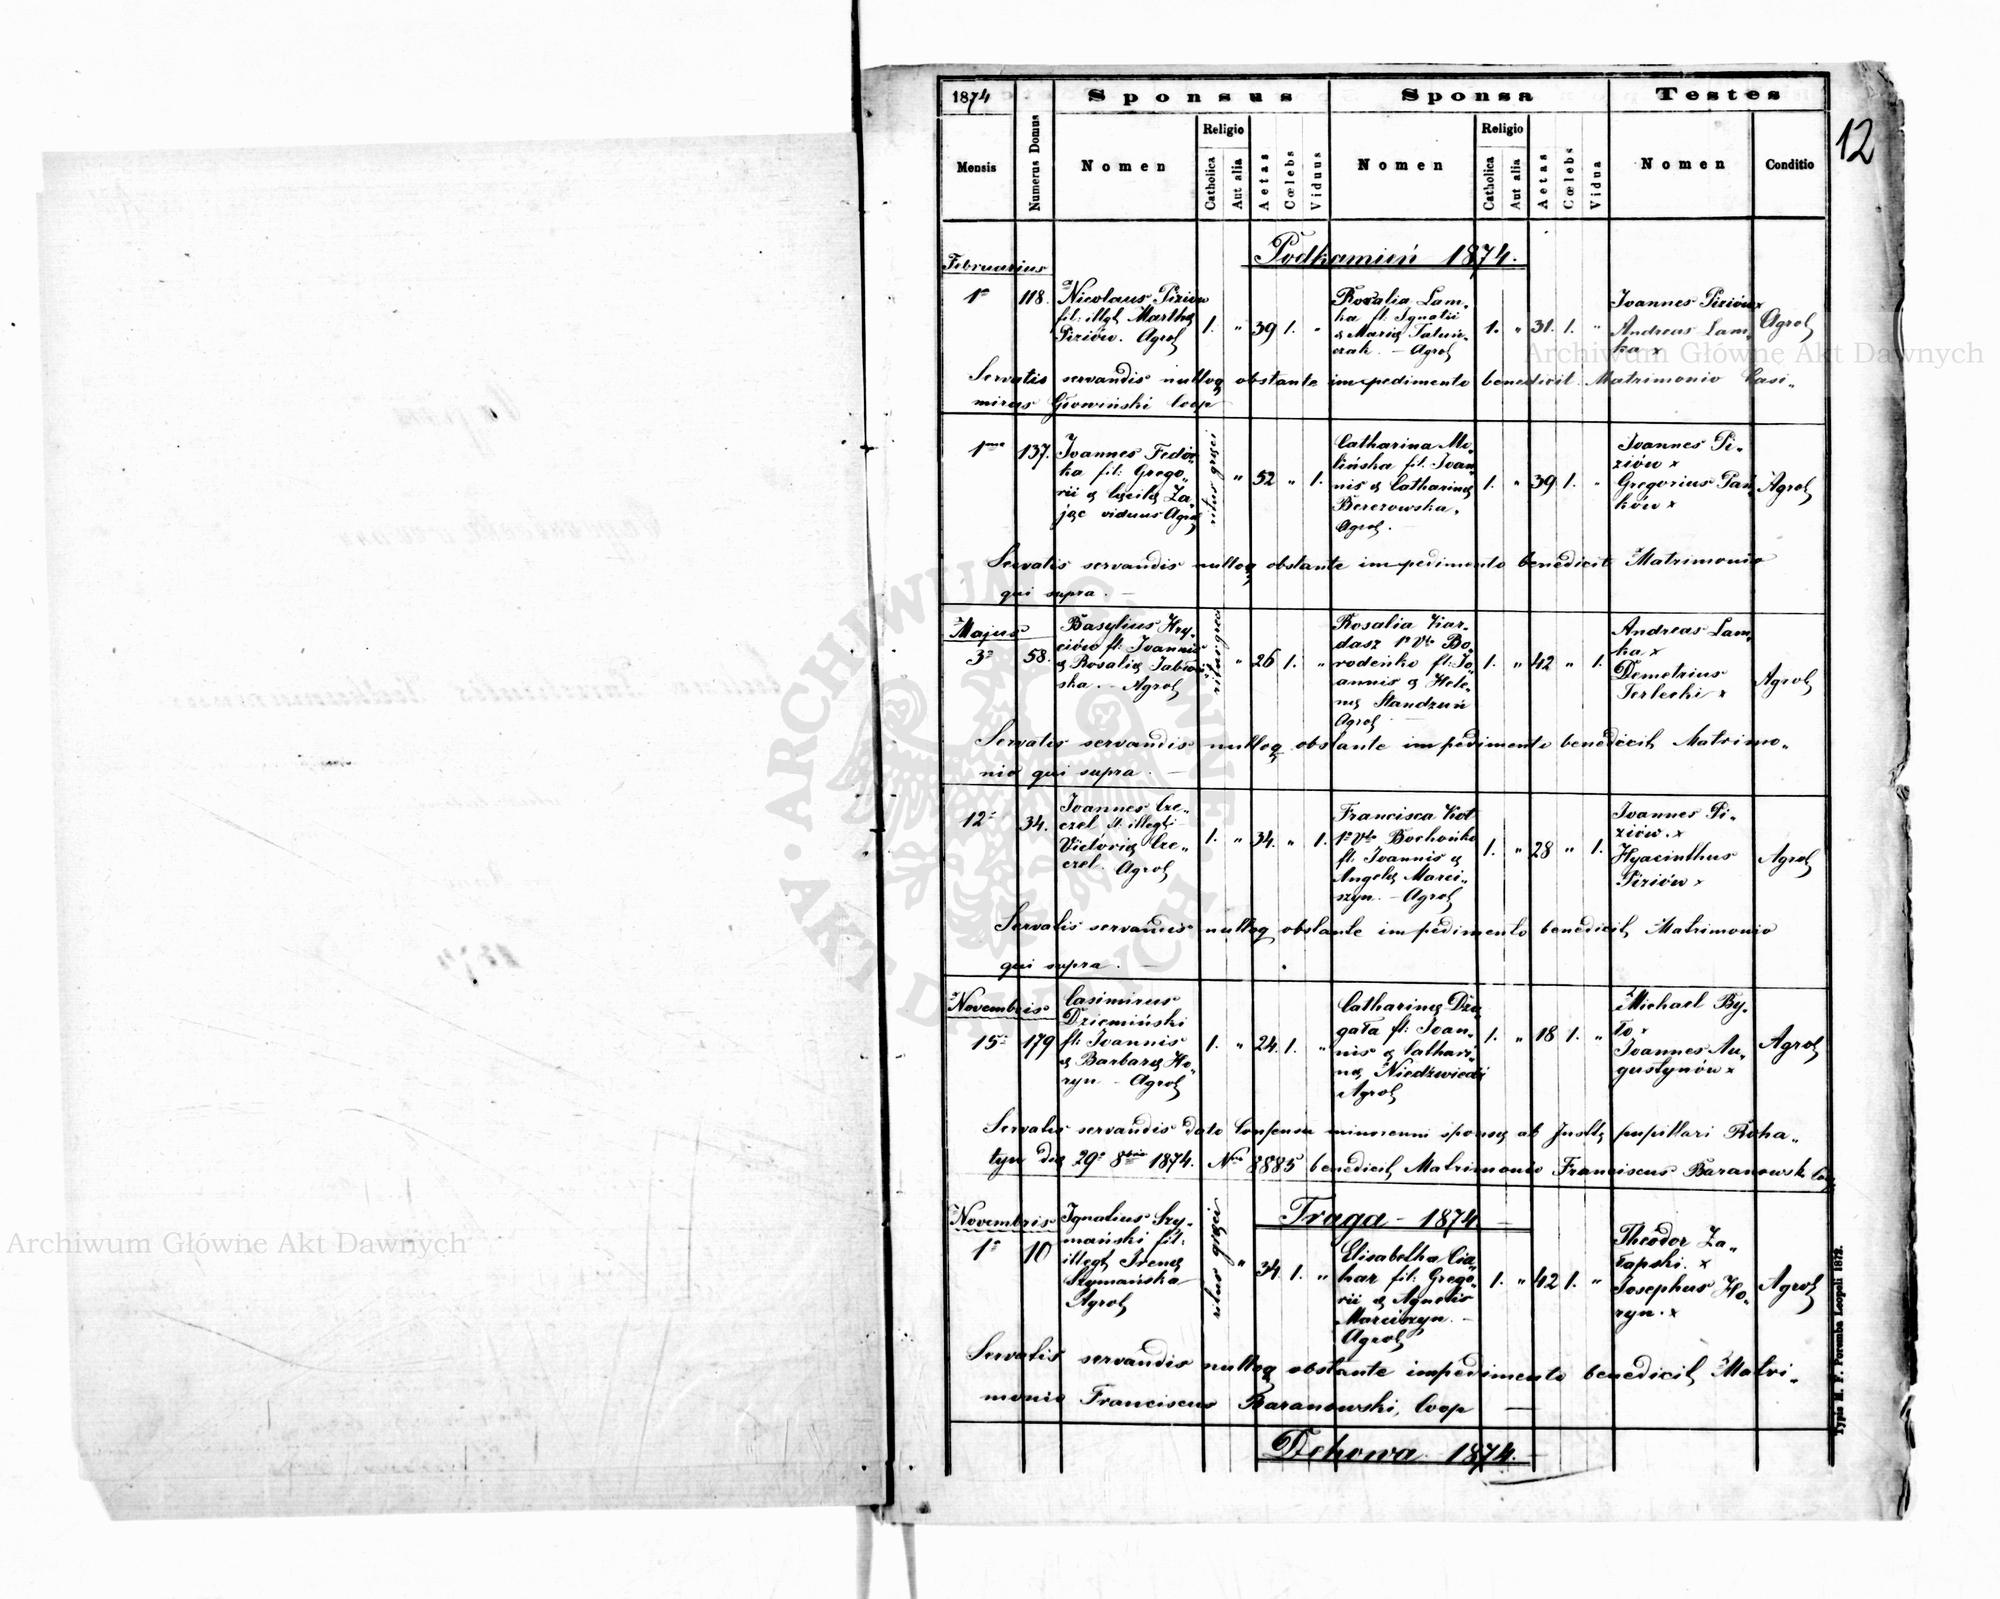 1874
Sponsus
Sponsa
Testes
12
Mensis
Numerus Domus
Nomen
Religio
Catholica
Aut alia
Aetas
Cœlebs
Viduus
Nomen
Religio
Catholica
Aut alia
Aetas
Cœlebs
Vidua
Nomen
Conditio
Podkamień 1874.
Februarius
1a 118. Nicolaus Piziów
fil: illgl Marthę
Piziów. Agrol
1. " 39 1. "
Rozalia Lam-
ka fl. Ignatii
& Marię Tatuń-
czak. — Agrol
1. " 31. 1. "
Joannes Piziów x
Andreas Lam-
ka x
Agrol
Servatis servandis nulloq obstante impedimento benedicit Matrimonio Casi-
mirus Głowiński Coop
1ma 137. Joannes Fedor-
ka fil: Grego-
rii & Cęcilię Za-
jąc viduus Agrol
ritus gręci
" 52 " 1.
Catharina Mo-
lińska fil. Joan-
nis & Catharinę
Berezowska.
Agrol. —
1. " 39 1. "
Joannes Pi-
ziów x
Gregorius Pań-
ków x
Agrol
Servatis servandis nulloq obstante impedimento benedicit Matrimonio
qui supra. —
Majus
3a 58. Basylius Hry-
ciów fl. Joannis
& Rosalię Jabłoń-
ska. — Agrol
ritus gręci
" 26 1. "
Rosalia Kar-
dasz 1o Vto Bo-
rodeńko fl: Jo-
annis & Hele-
nę Standzuń
Agrol
1. " 42 " 1.
Andreas Lam-
ka x
Demetrius
Terlecki x
Agrol
Servatis servandis nulloq obstante impedimento benedicit Matrimo-
nio qui supra. —
12a 34. Joannes Cze-
czel fl. illegti
Victorię Cze-
czel. Agrol
1. " 34. " 1.
Francisca Kot
1o Vto Bochońko
fl. Joannis &
Angelę Marci-
szyn. — Agrol
1. " 28 " 1.
Joannes Pi-
ziów. x
Hyacinthus
Piziów x
Agrol
Servatis servandis nulloq obstante impedimento benedicit Matrimonio
qui supra. —
Novembris
15a 179 Casimirus
Dziemiński
fl: Joannis
& Barbarę Ho-
ryn — Agrol
1. " 24. 1. "
Catharinę Dzy-
gała fl: Joan-
nis & Cathari-
nę Niedźwiedź
Agrol
1. " 18 1. "
Michael By-
ło x
Joannes Au-
gustynów x
Agrol
Servatis servandis dato Consensu minorenni sponsę ab Justę pupillari Roha-
tyn dię 29a 8bris 1874. Nro 8885 benedicit Matrimonio Franciscus Baranowsk Coop
Traga — 1874 —
Novembris
1a 10 Ignatius Szy-
mański fil:
illegt Irenę
Szymańska
Agrol
ritus gręci
" 34. 1. "
Elisabetha Cia-
har fil: Grego-
rii & Agnetis
Marciszyn. —
Agrol
1. " 42 1. "
Theodor Za-
łapski. x
Josephus Ho-
ryn. x
Agrol
Servatis servandis nulloq obstante impedimento benedicit Matri-
monio Franciscus Baranowski, Coop —
Dehowa 1874.
Typis H. F. Poremba Leopoli 1872.
Archiwum Główne Akt Dawnych
Archiwum Główne Akt Dawnych
ARCHIWUM GŁÓWNE AKT DAWNYCH